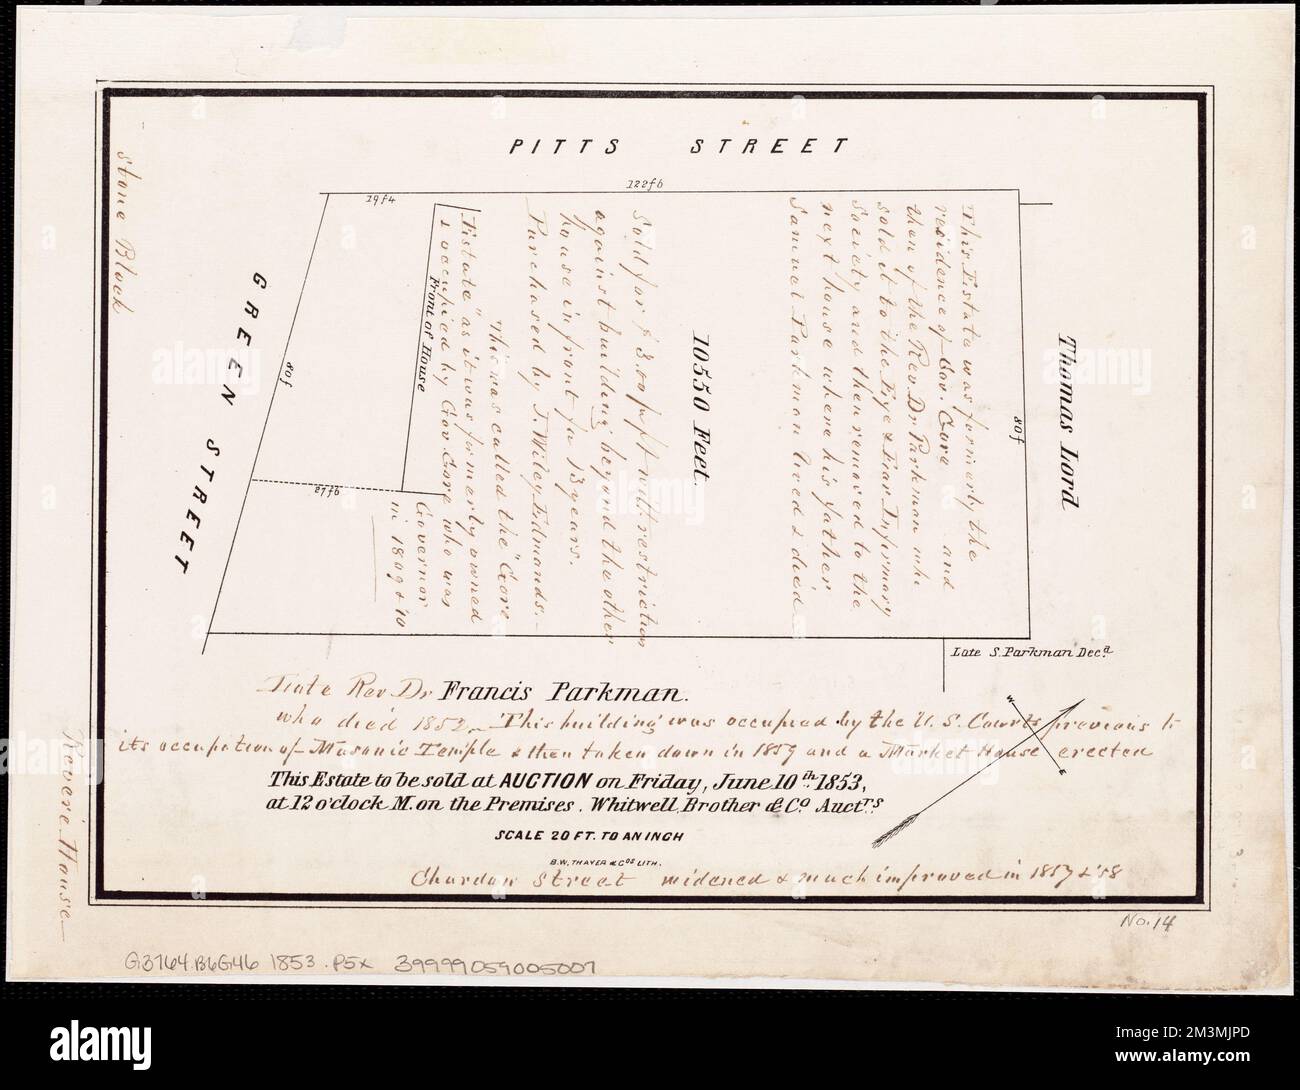 PITTS STREET
122f6
19f4
Stone Block
GREEN STREET
80f
27f6
Front of House
Governor
in 1809 & '10
"This was called the "Gore
Estate" as it was formerly owned
& occupied by Gov. Gore who was
Sold for $ 3.00 pr ft with restriction
against building beyond the other
house in front for 13 years.
Purchased by T. Wiley Edmands.
10550 Feet.
This Estate was formerly the
residence of Gov. Gore and
then of the Rev. Dr Parkman who
sold it to the Eye & Ear Infirmary
Society and then removed to the
next house where his father
Samuel Parkman lived & died
80f
Thomas Lord
Late S. Parkman Decd.
Late Rev. Dr Francis Parkman.
who died 1852. This building was occupied by the U. S. Courts previous to
its occupation of Masonic Temple & then taken down in 1859 and a Market House erected
This Estate to be sold at AUCTION on Friday, June 10th 1853,
at 12 o'clock M. on the Premises. Whitwell, Brother & Co. Auctrs
W
E
SCALE 20 FT. TO AN INCH
B.W. THAYER & COS LITH.
Chardon Street widened & much improved in 1857 & '58
Revere House
No. 14
G3764.B6G46 1853 .P5x 39999059005007
alamy
alamy
2M3MJPD
www.alamy.com